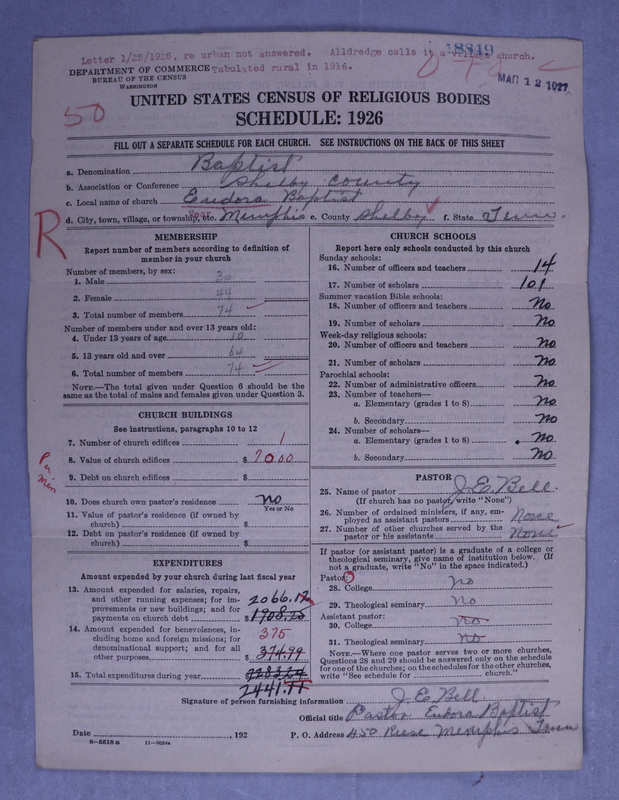 18819
Letter 1/25/1928, re urban not answered. Alldredge calls it a village church.
DEPARTMENT OF COMMERCE Tabulated rural in 1916.
BUREAU OF THE CENSUS
WASHINGTON
MAR 12 1927
50
UNITED STATES CENSUS OF RELIGIOUS BODIES
SCHEDULE: 1926
FILL OUT A SEPARATE SCHEDULE FOR EACH CHURCH. SEE INSTRUCTIONS ON THE BACK OF THIS SHEET
a. Denomination Baptist
b. Association or Conference Shelby County
c. Local name of church Eudora Baptist
d. City, town, village, or township, etc. Near Memphis e. County Shelby f. State Tenn.
R
MEMBERSHIP
Report number of members according to definition of
member in your church
Number of members, by sex:
1. Male 30
2. Female 44
3. Total number of members 74
Number of members under and over 13 years old:
4. Under 13 years of age 10
5. 13 years old and over 64
6. Total number of members 74
NOTE.—The total given under Question 6 should be the
same as the total of males and females given under Question 3.
CHURCH BUILDINGS
See instructions, paragraphs 10 to 12
7. Number of church edifices 1
8. Value of church edifices $ 7000
9. Debt on church edifices $
10. Does church own pastor's residence No
Yes or No
11. Value of pastor's residence (if owned by
church) $
12. Debt on pastor's residence (if owned by
church) $
EXPENDITURES
Amount expended by your church during last fiscal year
13. Amount expended for salaries, repairs,
and other running expenses; for im-
provements or new buildings; and for
payments on church debt $
2066.12
14. Amount expended for benevolences, in-
cluding home and foreign missions; for
denominational support; and for all
other purposes $ 374.99
375
15. Total expenditures during year
2441.11
CHURCH SCHOOLS
Report here only schools conducted by this church
Sunday schools:
16. Number of officers and teachers 14
17. Number of scholars 101
Summer vacation Bible schools:
18. Number of officers and teachers No
19. Number of scholars No
Week-day religious schools:
20. Number of officers and teachers No
21. Number of scholars No
Parochial schools:
22. Number of administrative officers No
23. Number of teachers—
a. Elementary (grades 1 to 8) No
b. Secondary No
24. Number of scholars—
a. Elementary (grades 1 to 8) No
b. Secondary No
PASTOR
25. Name of pastor J. E. Bell
(If church has no pastor, write "None")
26. Number of ordained ministers, if any, em-
ployed as assistant pastors None
27. Number of other churches served by the
pastor or his assistants None
If pastor (or assistant pastor) is a graduate of a college or
theological seminary, give name of institution below. (If
not a graduate, write "No" in the space indicated.)
Pastor:
28. College No
29. Theological seminary No
Assistant pastor:
30. College No
31. Theological seminary No
NOTE.—Where one pastor serves two or more churches,
Questions 28 and 29 should be answered only on the schedule
for one of the churches; on the schedules for the other churches,
write "See schedule for church."
Signature of person furnishing information J. E. Bell
Official title Pastor Eudora Baptist
Date , 192 P. O. Address 450 Reese Memphis Tenn
8-5518 a 11-9054a